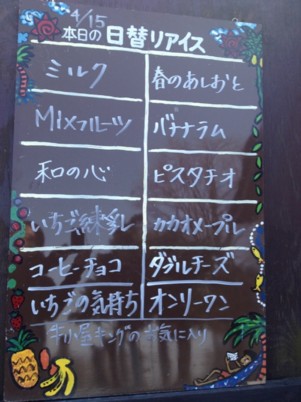 4/15
本日の日替りアイス
ミルク
春のあしおと
Mixフルーツ
バナナラム
和の心
ピスタチオ
いちご練乳
カカオメープル
コーヒーチョコ
ダブルチーズ
いちごの気持ち
オンリーワン
キングのお気に入り